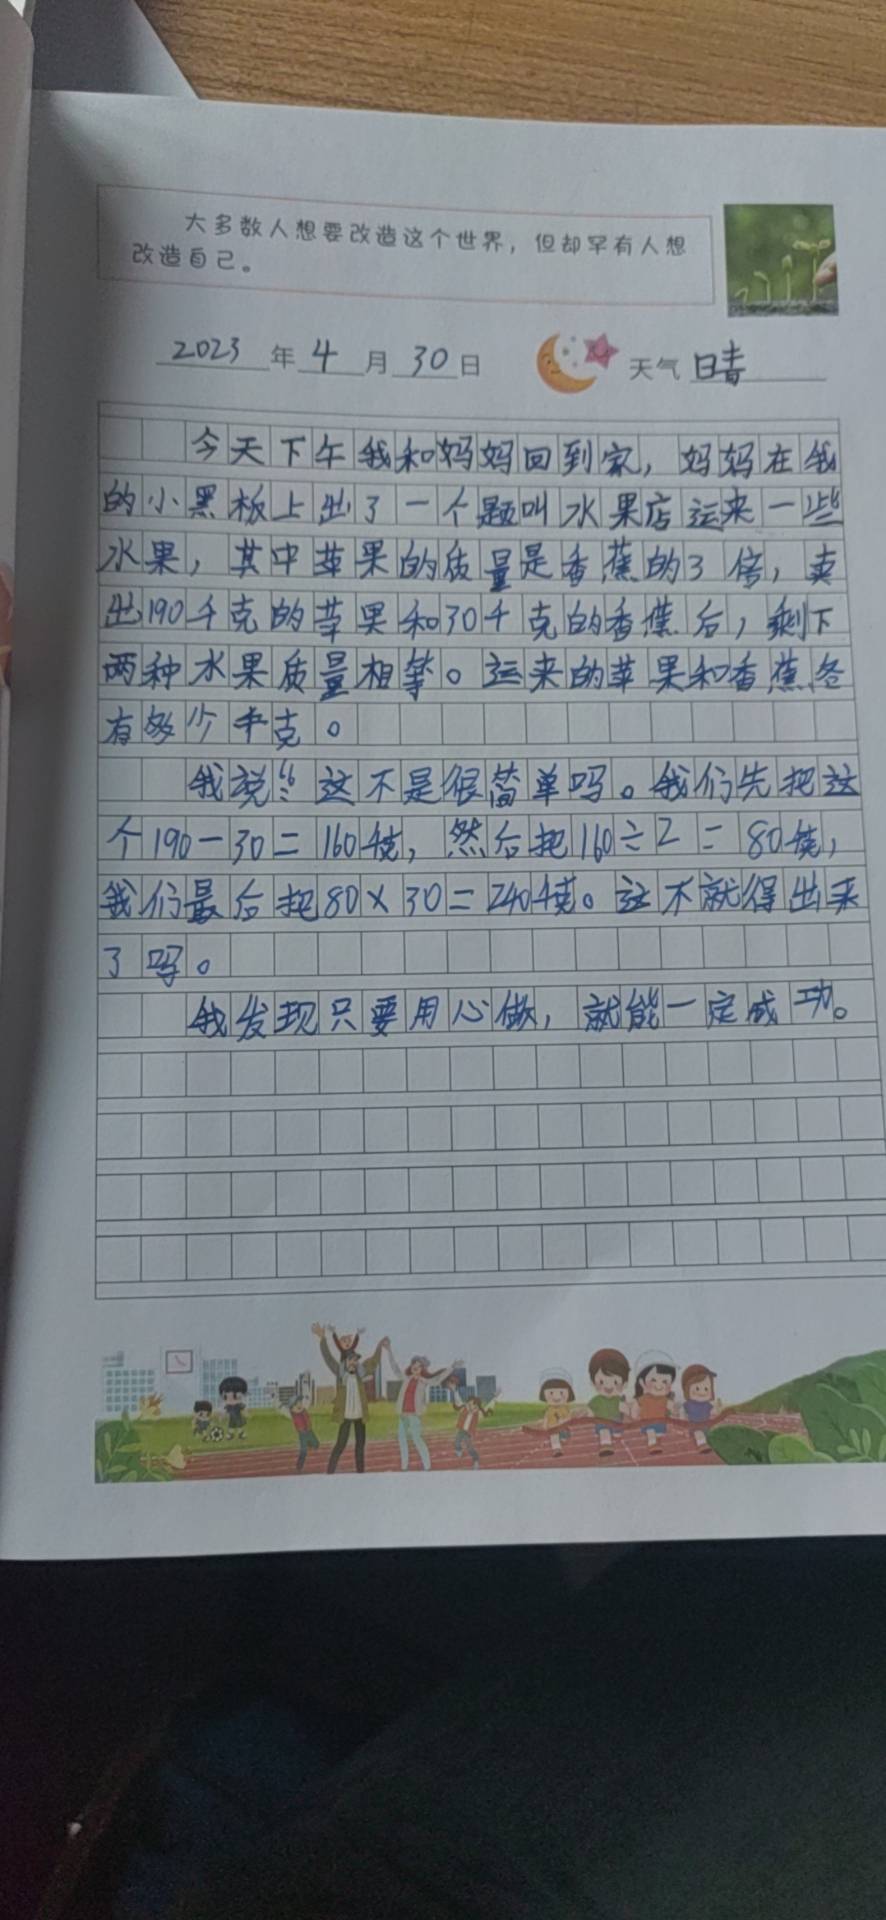 大多数人想要改造这个世界，但却罕有人想
改造自己。
2023年4月30日 天气 晴
今天下午我和妈妈回到家，妈妈在我
的小黑板上出了一个题叫水果店运来一些
水果，其中苹果的质量是香蕉的3倍，卖
出190千克的苹果和30千克的香蕉后，剩下
两种水果质量相等。运来的苹果和香蕉各
有多少千克。
我说：“这不是很简单吗。我们先把这
个190-30=160千克，然后把160÷2=80千克，
我们最后把80×30=240千克。这不就得出来
了吗。
我发现只要用心做，就能一定成功。